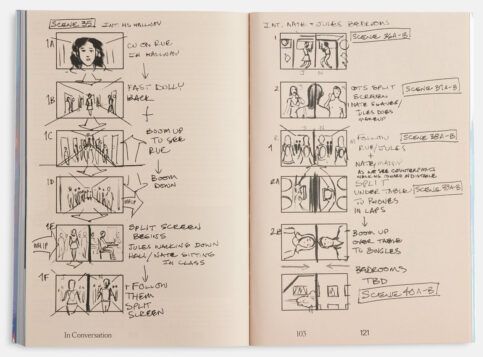 SCENE 35 INT. HS HALLWAY
1A
CU ON RUE
IN HALLWAY
1B
FAST DOLLY
BACK
1C
BOOM UP
TO SEE
RUE
1D
BOOM
DOWN
WHIP
1E
WHIP
SPLIT SCREEN
BEGINS
JULES WALKING DOWN
HALL/NATE SITTING
IN CLASS
1F
FOLLOW
THEM
SPLIT
SCREEN
In Conversation
INT. NATE + JULES BEDROOMS
1
SCENE 36A-B
J N
2
OTS SPLIT
SCREEN
NATE SHAVES/
JULES DOES
MAKEUP
SCENE 37A-B
1
2
FOLLOW
RUE/JULES
+
NATE/MADDY
AS WE SEE COUNTERPARTS
SCENE 38A-B
2A
SPLIT
UNDER TABLE
TO PHONES
IN LAPS
SCENE 39A-B
2B
BOOM UP
OVER TABLE
TO SINGLES
BEDROOMS
TBD
SCENE 40A-B
103
121